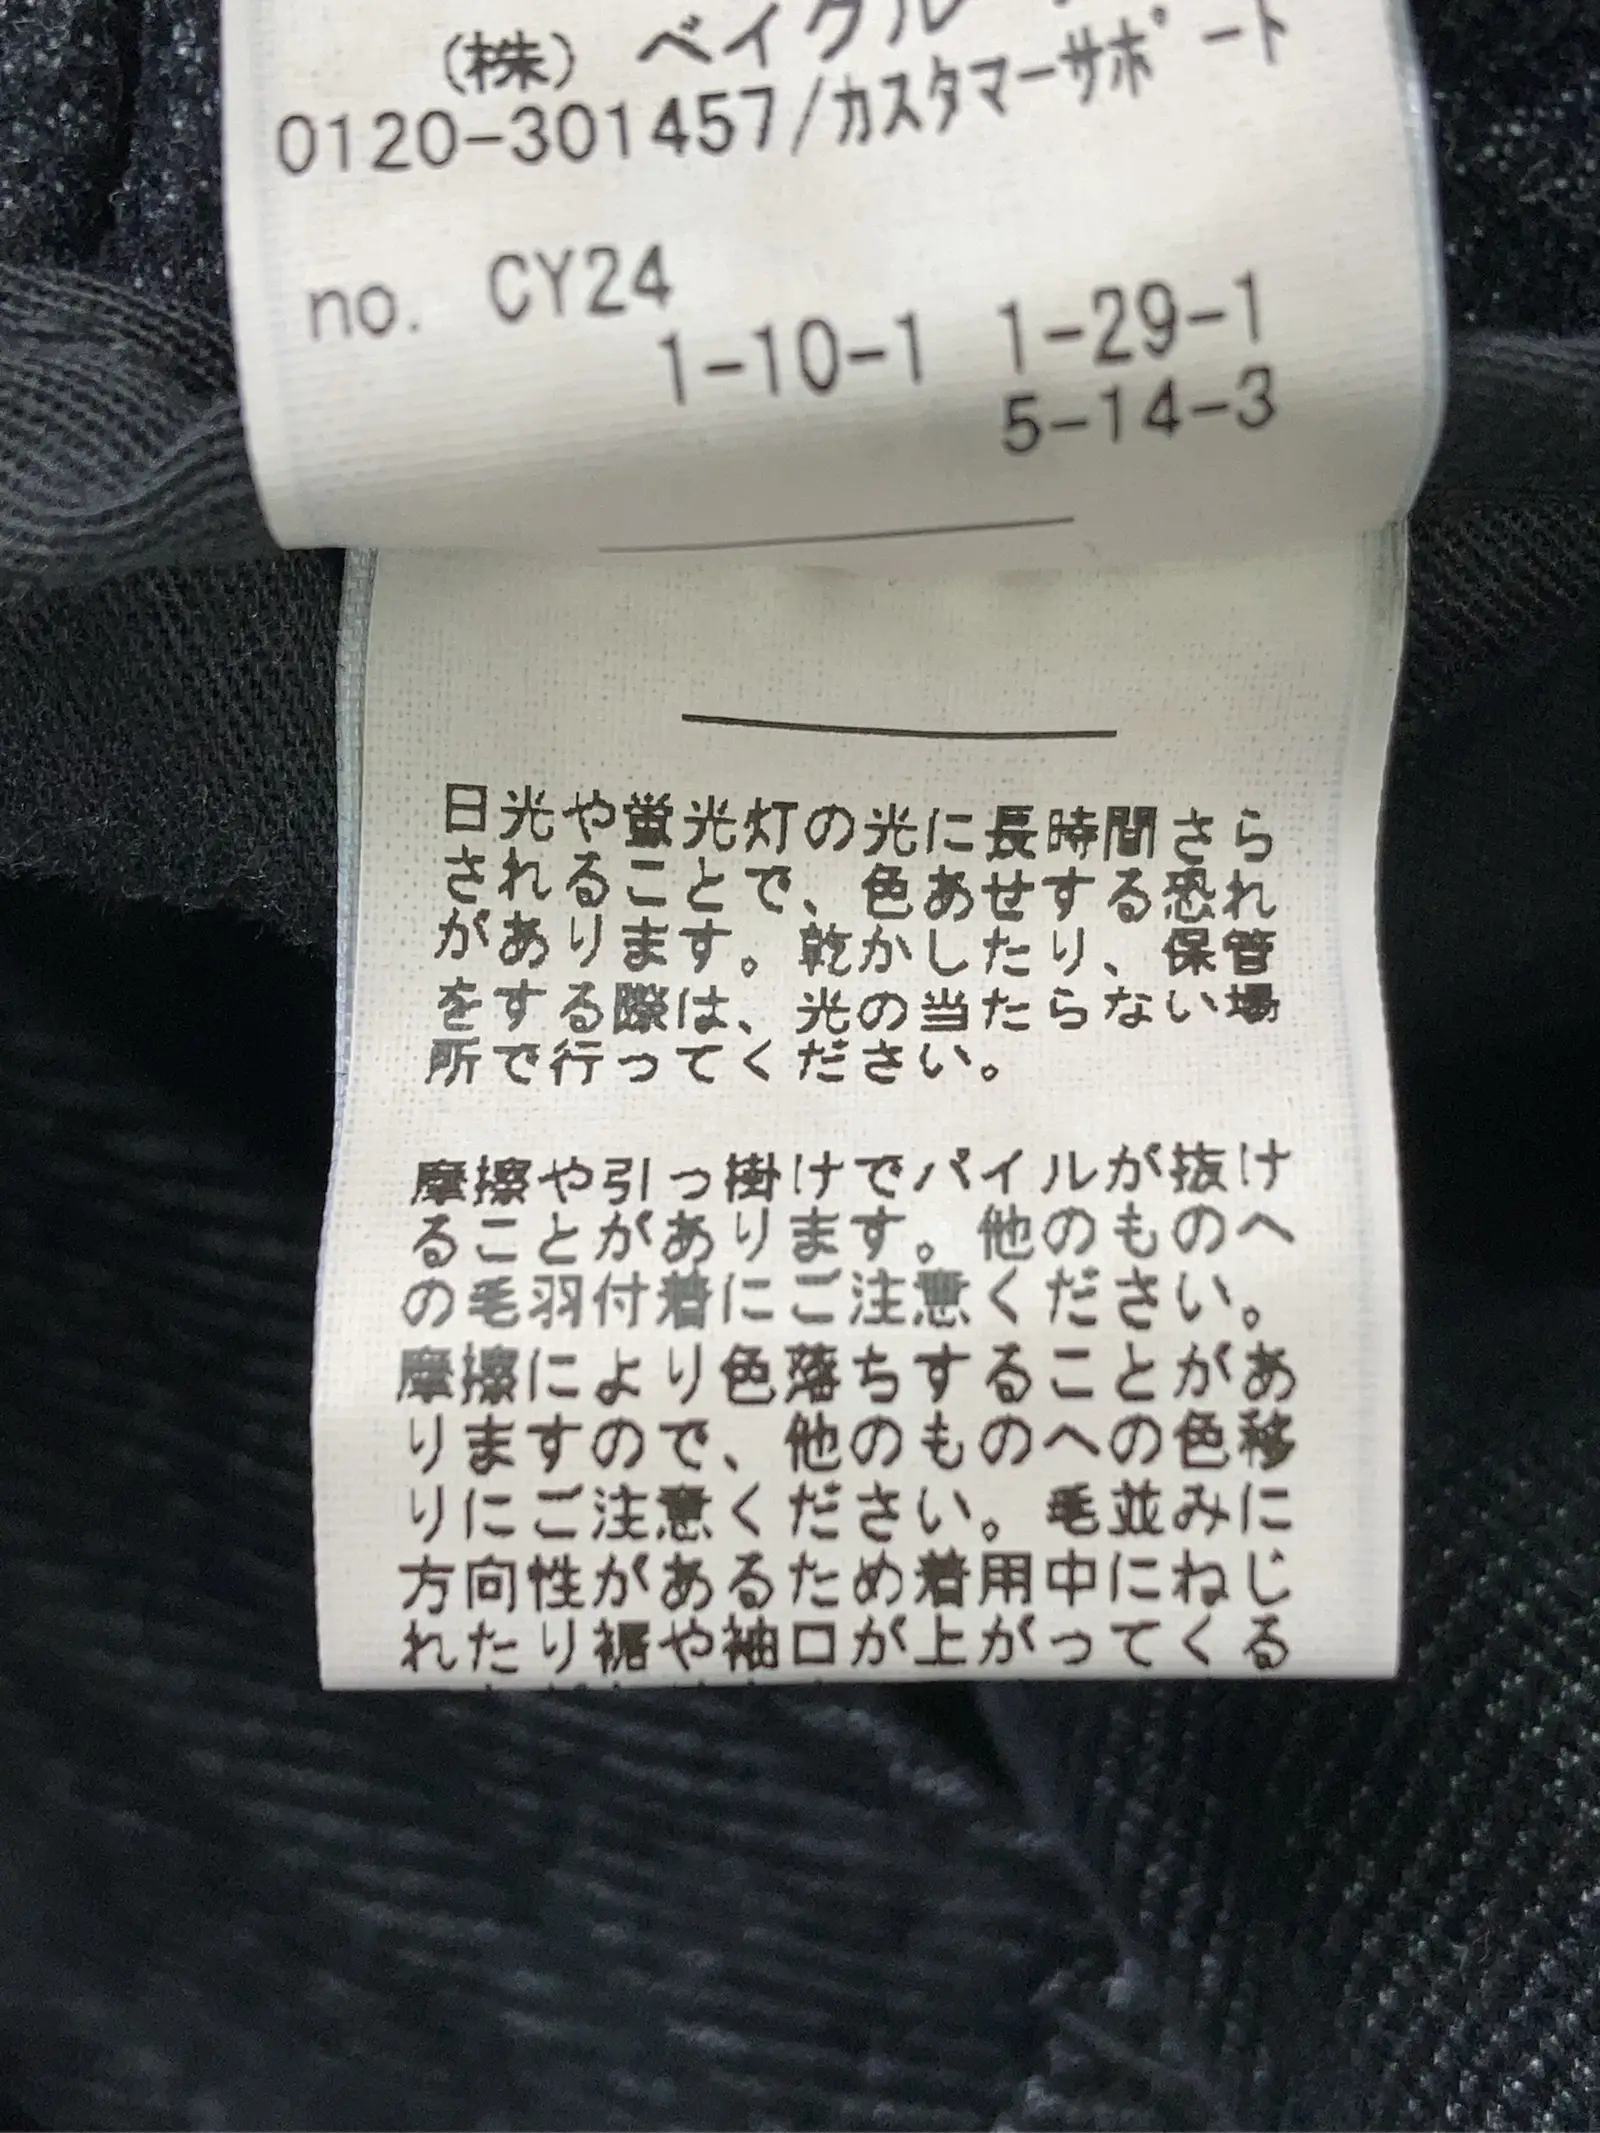 (株) ベイクルー
0120-301457/カスタマーサポート
no. CY24
1-10-1 1-29-1
5-14-3
日光や蛍光灯の光に長時間さら
されることで、色あせする恐れ
があります。乾かしたり、保管
をする際は、光の当たらない場
所で行ってください。
摩擦や引っ掛けでパイルが抜け
ることがあります。他のものへ
の毛羽付着にご注意ください。
摩擦により色落ちすることがあ
りますので、他のものへの色移
りにご注意ください。毛並みに
方向性があるため着用中にねじ
れたり裾や袖口が上がってくる